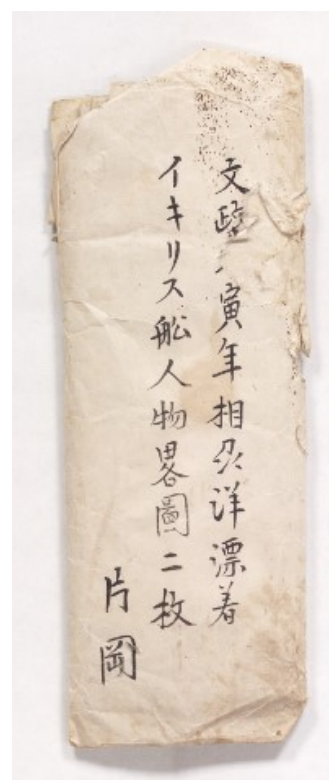 文政寅年相刕洋漂着
イキリス舩人物畧圖二枚
片岡